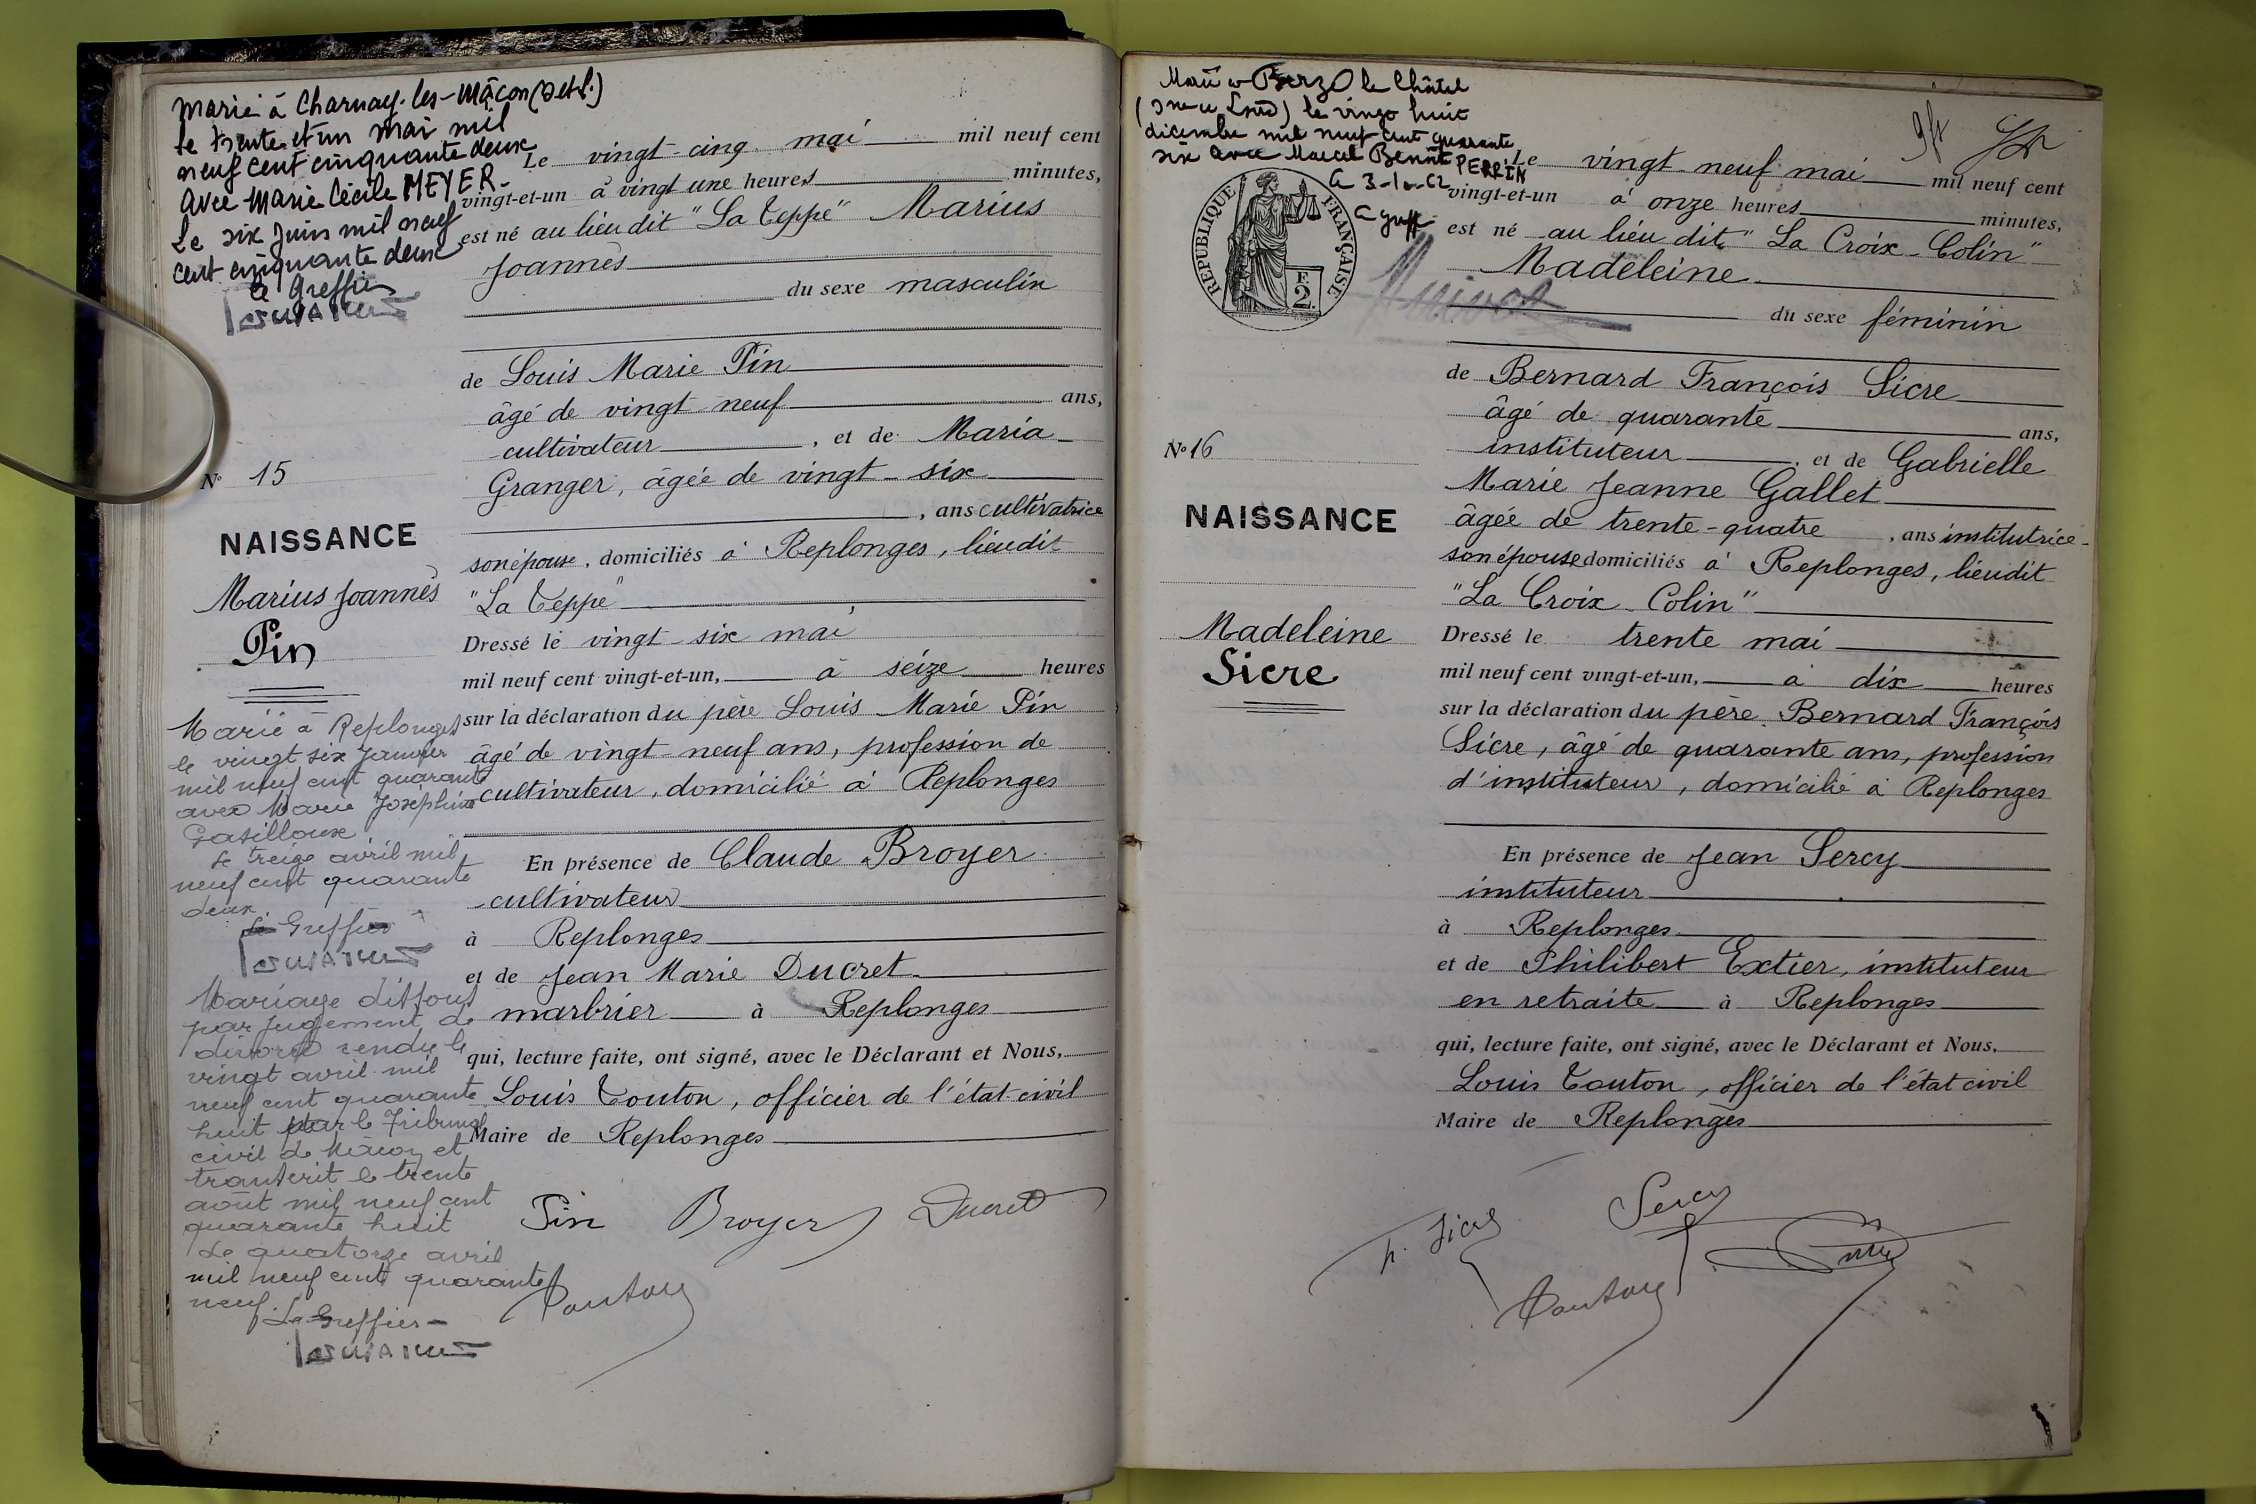 Marié à Charnay-les-Mâcon (S et L.)
le trente et un mai mil
neuf cent cinquante deux
avec Marie Cécile MEYER-
Le six juin mil neuf
cent cinquante deux
Le Greffier
N° 15
NAISSANCE
Marius Joannès
Pin
Marié à Replonges
le vingt six Janvier
mil neuf cent quarante
avec Marie Joséphine
Le treize avril mil
neuf cent quarante
deux.
Le Greffier
Mariage dissous
par jugement de
divorce rendu le
vingt avril mil
neuf cent quarante
huit par le Tribunal
civil de Mâcon et
transcrit le trente
août mil neuf cent
quarante huit
Le quatorze avril
mil neuf cent quarante
neuf.
Le Greffier -
Le vingt-cinq mai mil neuf cent
vingt-et-un à vingt une heures minutes,
est né au lieu dit "La Teppe" Marius
Joannès
du sexe masculin
de Louis Marie Pin
âgé de vingt-neuf ans,
cultivateur, et de Maria
Granger, âgée de vingt-six
, ans cultivatrice
son épouse, domiciliés à Replonges, lieu dit
"La Teppe"
Dressé le vingt-six mai
mil neuf cent vingt-et-un, à seize heures
sur la déclaration du père Louis Marie Pin
âgé de vingt-neuf ans, profession de
cultivateur, domicilié à Replonges
En présence de Claude Broyer
cultivateur
à Replonges
et de Jean Marie Ducret
marbrier à Replonges
qui, lecture faite, ont signé, avec le Déclarant et Nous,
Louis Touton, officier de l'état-civil
Maire de Replonges
Pin Broyer Ducret
Touton
Berzé le Châtel
le vingt huit
décembre mil neuf cent quarante
six avec Marcel Benoît PERRIN
RÉPUBLIQUE FRANÇAISE
F.
2.
N° 16
NAISSANCE
Madeleine
Sicre
Le vingt-neuf mai mil neuf cent
vingt-et-un à onze heures minutes,
est né au lieu dit "La Croix-Colin"
Madeleine
du sexe féminin
de Bernard François Sicre
âgé de quarante ans,
instituteur, et de Gabrielle
Marie Jeanne Gallet
âgée de trente-quatre, ans institutrice-
son épouse domiciliés à Replonges, lieu dit
"La Croix-Colin"
Dressé le trente mai
mil neuf cent vingt-et-un, à dix heures
sur la déclaration du père Bernard François
Sicre, âgé de quarante ans, profession
d'instituteur, domicilié à Replonges
En présence de Jean Sercy
instituteur
à Replonges
et de Philibert Extier, instituteur
en retraite à Replonges
qui, lecture faite, ont signé, avec le Déclarant et Nous,
Louis Touton, officier de l'état civil
Maire de Replonges
Sercy
Sicre
Touton